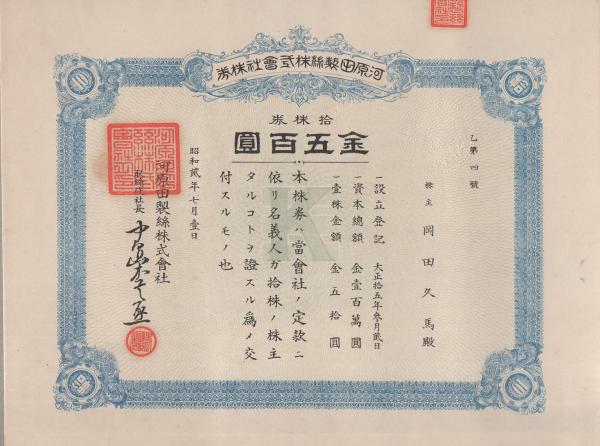 河原田製絲株式會社株券
拾株券
金五百圓
乙第四號
株主 岡田久馬殿
一設立登記 大正拾五年参月貳日
一資本總額 金壹百萬圓
一壹株金額 金五拾圓
本株券ハ當會社ノ定款ニ
依リ名義人ガ拾株ノ株主
タルコトヲ證スル爲メ交
付スルモノ也
昭和貳年七月壹日
河原田製絲株式會社
取締役社長
K